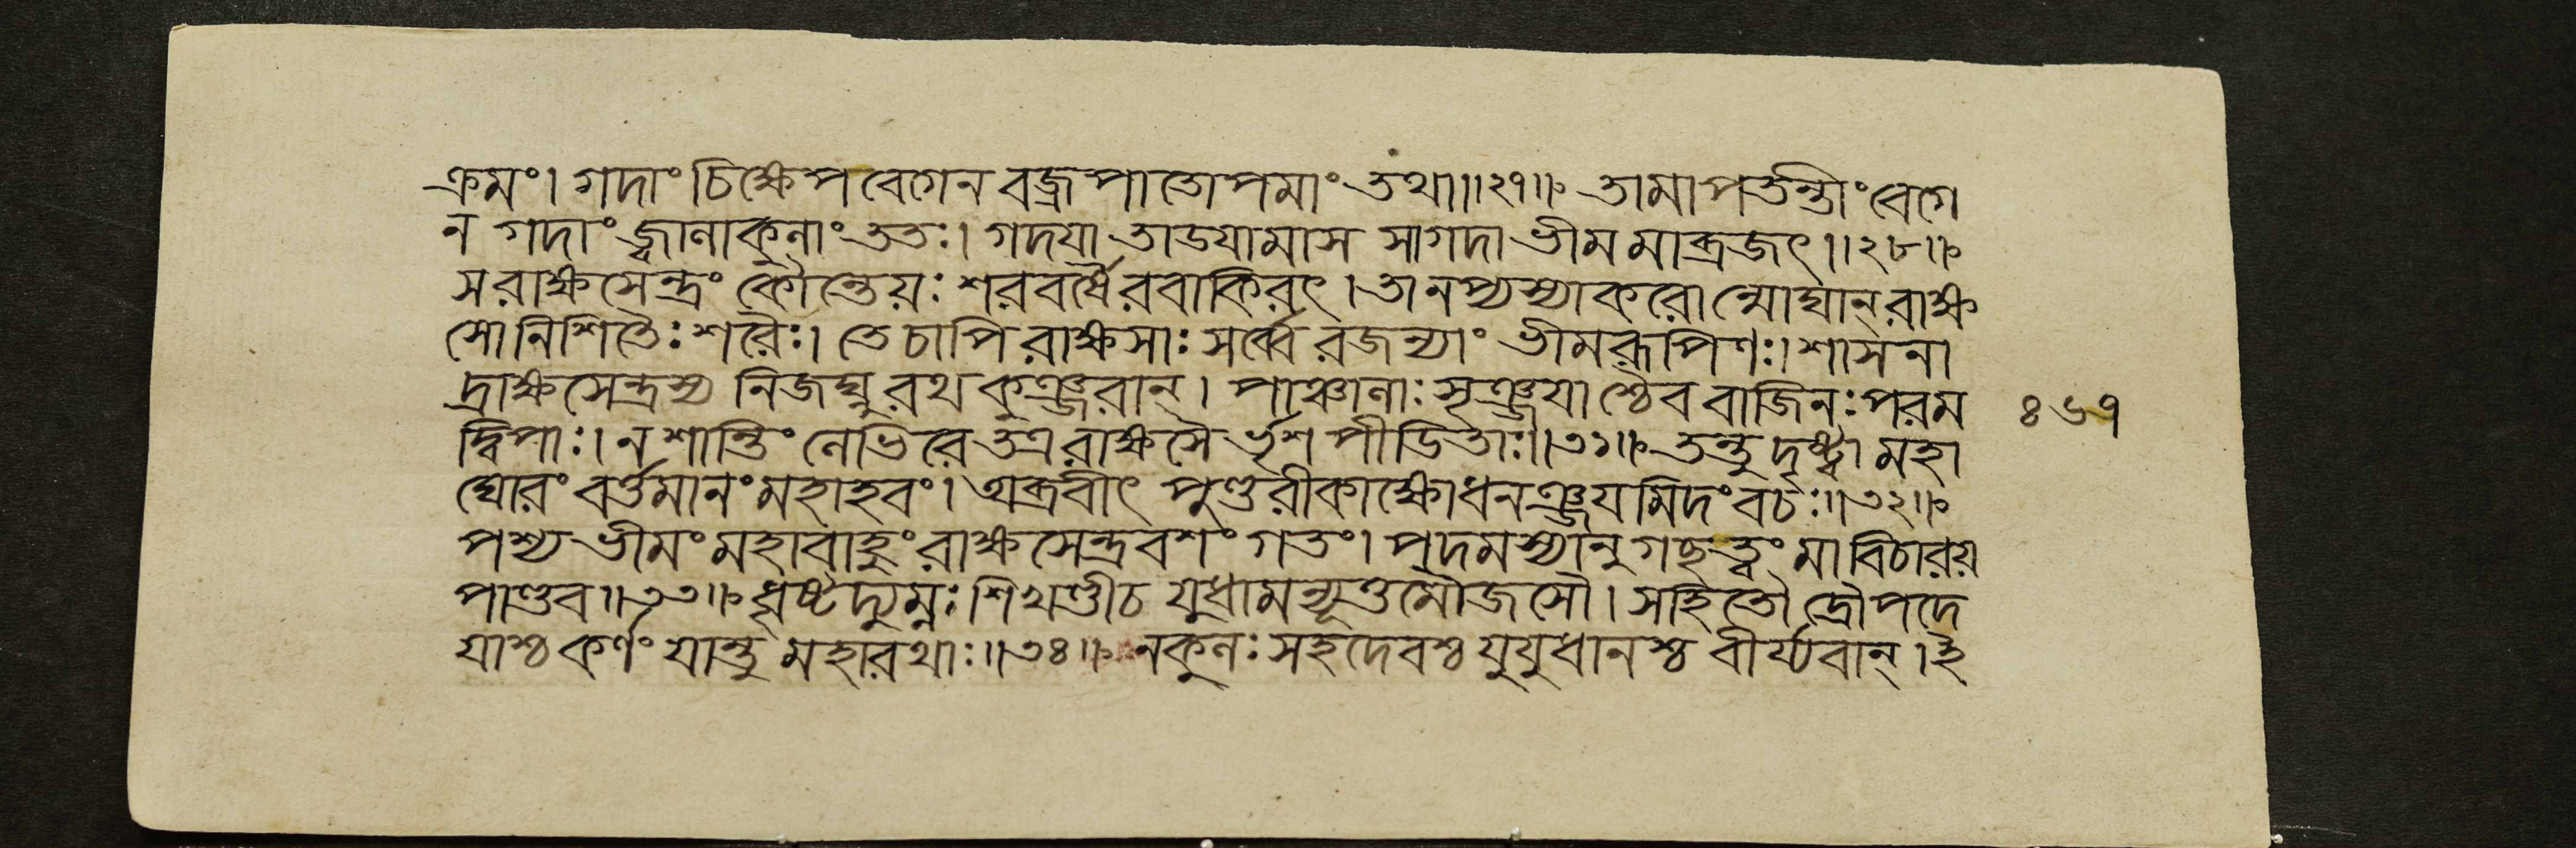 ক্রমং। গদাং চিক্ষেপ বেগেন বজ্রপাতোপমাং তথা॥২৭॥ তামাপতন্তীং বেগে
ন গদাং জ্বালাকুলাং ততঃ। গদয়া তাডয়ামাস সা গদা ভীমমাব্রজৎ॥২৮॥
স রাক্ষসেন্দ্রং কৌন্তেয়ঃ শরবর্ষৈরবাকিরৎ। তানপ্যস্যাকরোন্মোঘান্ রাক্ষ
সো নিশিতৈঃ শরৈঃ। তে চাপি রাক্ষসাঃ সর্ব্বে রজন্যাং ভীমরূপিণঃ। শাসনা
দ্রাক্ষসেন্দ্রস্য নিজঘ্নু রথকুঞ্জরান্। পাঞ্চালাঃ সৃঞ্জয়াশ্চৈব বাজিনঃ পরম
দ্বিপাঃ। ন শান্তিং লেভিরে তত্র রাক্ষসৈর্ভৃশপীডিতাঃ॥৩১॥ তন্তু দৃষ্ট্বা মহা
ঘোরং বর্ত্তমানং মহাহবং। অব্রবীৎ পুণ্ডরীকাক্ষো ধনঞ্জয়মিদং বচঃ॥৩২॥
পশ্য ভীমং মহাবাহুং রাক্ষসেন্দ্রবশং গতং। পদমস্যানুগছত্বং মা বিচারয়
পাণ্ডব॥৩৩॥ ধৃষ্টদ্যুম্নঃ শিখণ্ডী চ যুধামন্যূত্তমৌজসৌ। সহিতৌ দ্রৌপদে
য়াশ্চ কর্ণং যান্তু মহারথাঃ॥৩৪॥ নকুলঃ সহদেবশ্চ যুযুধানশ্চ বীর্য্যবান্। ই
৪৬৭